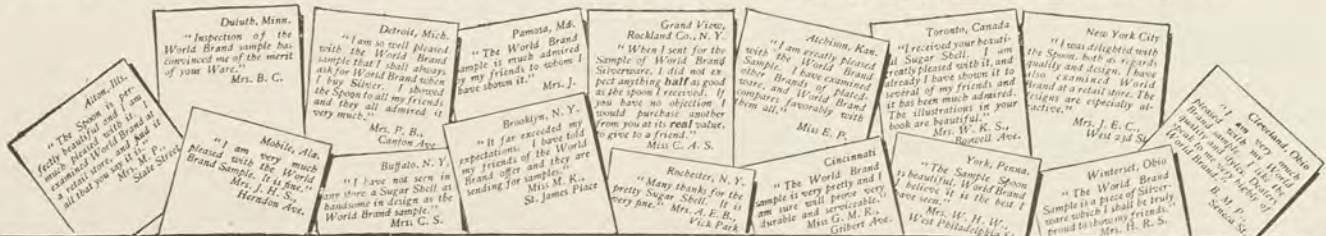 Alton, Ills.
"The Spoon is per-
fectly beautiful and I am
much pleased with it. I
examined World Brand at
a retail store, and had it
all that you say it is."
Mrs. M. P.,
State Street
Duluth, Minn.
"Inspection of the
World Brand sample has
convinced me of the merit
of your Ware."
Mrs. B. C.
Mobile, Ala.
"I am very much
pleased with the World
Brand Sample. It is fine."
Mrs. J. H. S.,
Herndon Ave.
Detroit, Mich.
"I am so well pleased
with the World Brand
sample that I shall always
ask for World Brand when
I buy Silver. I showed
the Spoon to all my friends
and they all admired it
very much."
Mrs. P. B.,
Canton Ave.
Buffalo, N. Y.
"I have not seen in
any store a Sugar Shell as
handsome in design as the
World Brand sample."
Mrs. C. S.
Pamosa, Md.
"The World Brand
sample is much admired
by my friends to whom I
have shown it."
Mrs. J.
Brooklyn, N. Y.
"It far exceeded my
expectations. I have told
my friends of the World
Brand offer and they are
sending for samples."
Miss M. K.,
St. James Place
Grand View,
Rockland Co., N. Y.
"When I sent for the
Sample of World Brand
Silverware, I did not ex-
pect anything half as good
as the spoon I received. If
you have no objection I
would purchase another
from you at its real value,
to give to a friend."
Miss C. A. S.
Rochester, N. Y.
"Many thanks for the
pretty Sugar Shell. It is
very fine."
Mrs. A. E. B.,
Vick Park
Atchison, Kan.
"I am greatly pleased
with the World Brand
Sample. I have examined
other Brands of plated-
ware, and World Brand
compares favorably with
them all."
Miss E. P.
Cincinnati
"The World Brand
sample is very pretty and I
am sure will prove very
durable and serviceable."
Miss G. M. R.,
Gilbert Ave.
Toronto, Canada
"I received your beauti-
ful Sugar Shell. I am
greatly pleased with it, and
already I have shown it to
several of my friends and
it has been much admired.
The illustrations in your
book are beautiful."
Mrs. W. K. S.,
Boswell Ave.
York, Penna.
"The Sample Spoon
is beautiful. World Brand
I believe it is the best I
have seen."
Mrs. W. H. W.,
West Philadelphia S
New York City
"I was delighted with
the Spoon, both as regards
quality and design. I have
also examined World
Brand at a retail store. The
designs are especially at-
tractive."
Mrs. J. E. C.,
West 23d St.
Winterset, Ohio
"The World Brand
Sample is a piece of Silver-
ware which I shall be truly
proud to show my friends."
Mrs. H. R. S.
Cleveland, Ohio
"I am very much
pleased with the World
Brand sample. I like the
quality and style. Dealers
speak to me very highly of
World Brand."
B. M. P.,
Seneca St.